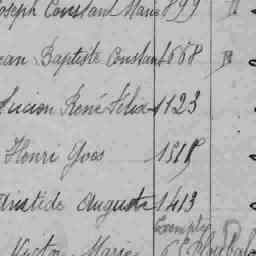 Joseph Constant Marie 899
Jean Baptiste Constant 1568
Lucien René Félix 1123
Henri Yves 1518
Aristide Auguste 1413
Exempté
Victor Marie